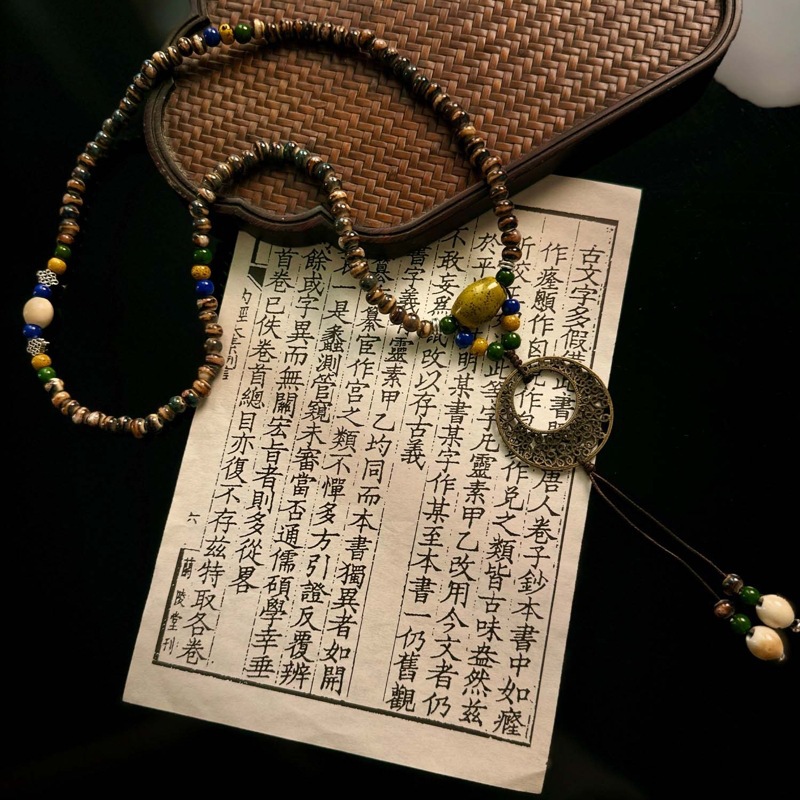 古文字多假此書唐人卷子鈔本書中如癃
作作作兌之類皆古味盎然茲
此等字凡靈素甲乙改用今文者仍
於平明某書某字作某至本書一仍舊觀
不敢妄爲改以存古義
書字義靈素甲乙均同而本書獨異者如開
纂官作宮之類不憚多方引證反覆辨
一是蠡測管窺未審當否通儒碩學幸垂
餘或字異而無關宏旨者則多從畧
首卷已佚卷首總目亦復不存茲特取各卷
六
蘭陵堂刊